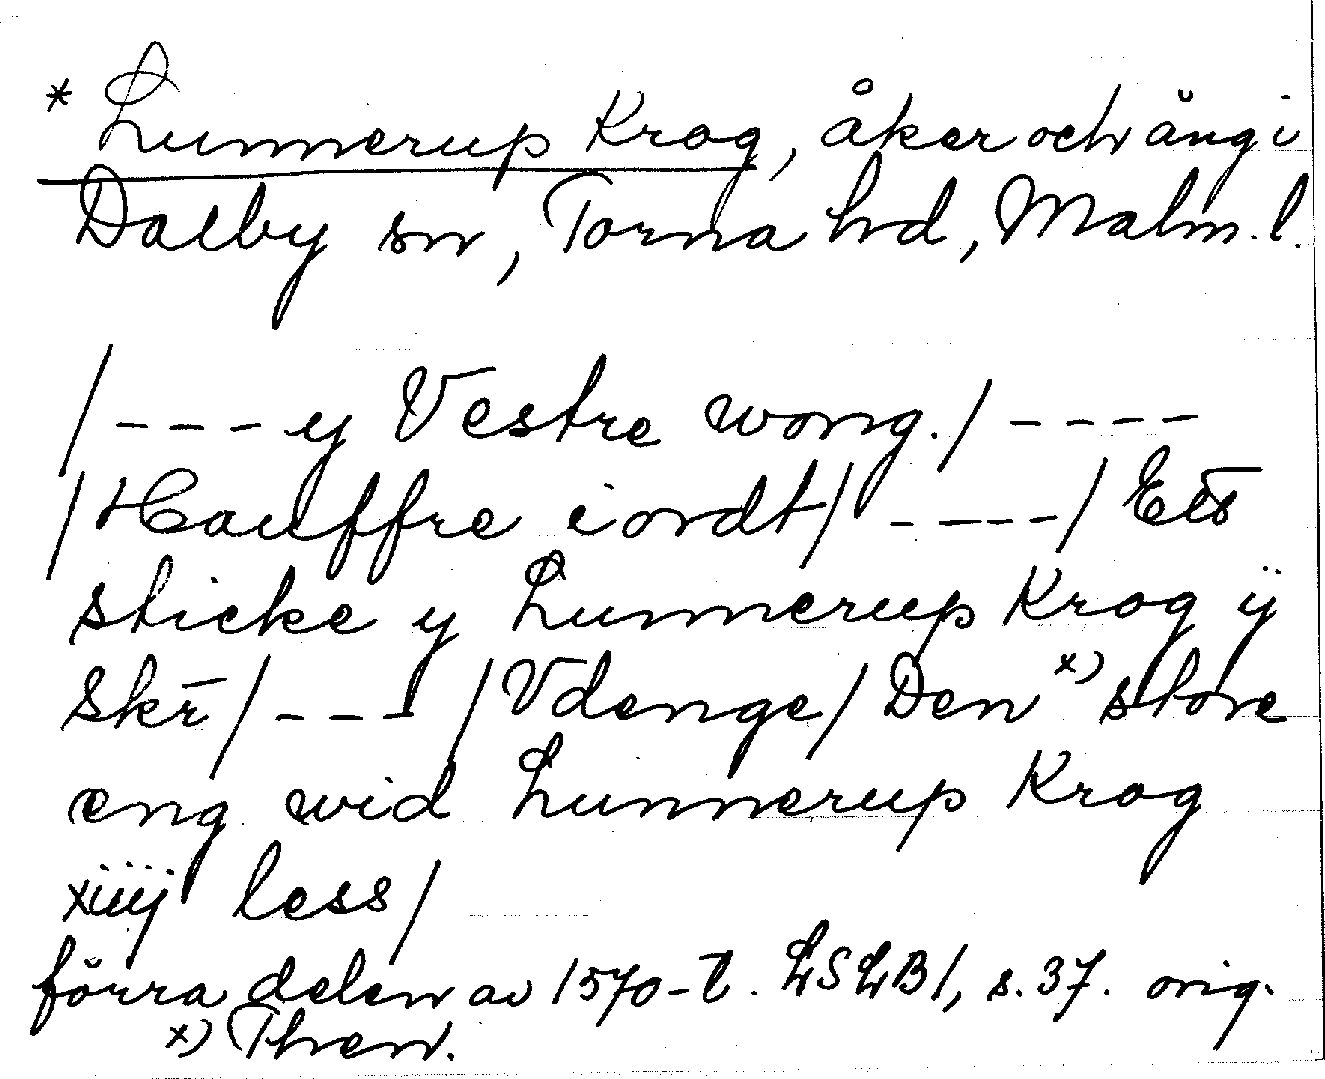 * Lunnerup Krog, åker och äng i
Dalby sn, Torna hd, Malm. l.
/---- y Vestre wong./ ----
/Hauffre iordt/ ----/ Ets
sticke y Lunnerup Krog ÿ
skr̄/---/Vdenge/ Den x) store
eng wid Lunnerup Krog
xiiij less/
förra delen av 1570-t. LSLB1, s. 37. orig.
x) Then.